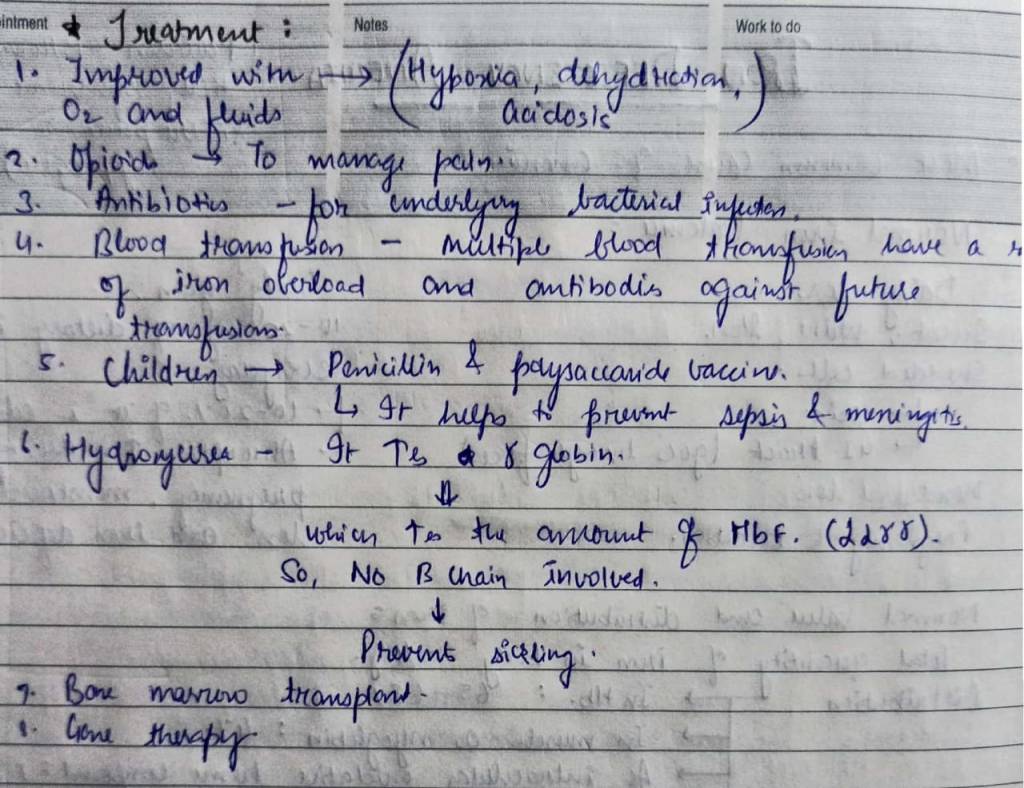 ointment Notes Work to do
★ Treatment :
1. Improved with → (Hypoxia, dehydration,
O2 and fluids acidosis)
2. Opioids → To manage pain.
3. Antibiotics - for underlying bacterial infection.
4. Blood transfusion - multiple blood transfusion have a
of iron overload and antibodis against future
transfusions.
5. Children → Penicillin & polysaccaride vaccine.
↳ It helps to prevent sepsis & meningitis.
6. Hydroxyurea - It ↑es γ globin.
⇓
which ↑es the amount of HbF. (ααγγ).
So, No B chain involved.
↓
Prevent sickling.
7. Bone marrow transplant.
8. Gene therapy